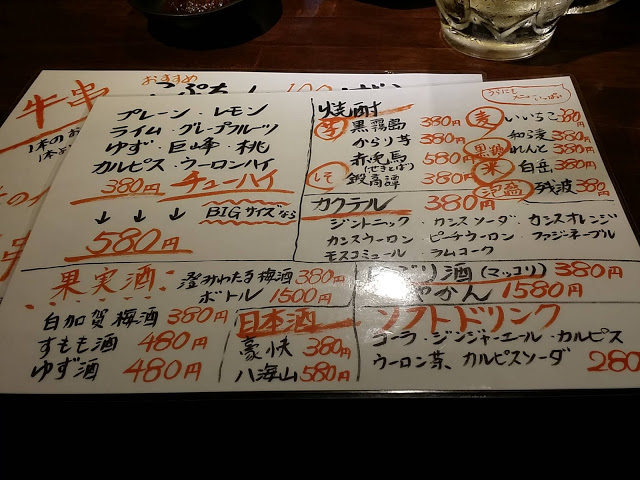 おすすめ
牛串
プレーン・レモン
ライム・グレープフルーツ
ゆず・巨峰・桃
カルピス・ウーロンハイ
380円 チューハイ
↓ ↓ ↓ BIGサイズなら
580円
焼酎
芋 黒霧島 380円
からり芋 380円
赤兎馬 580円
(せきとば)
しそ 鍛高譚 380円
麦 いいちこ 380円
和ら麦 380円
黒糖 れんと 380円
米 白岳 380円
泡盛 残波 380円
カクテル 380円
ジントニック・カシスソーダ・カシスオレンジ
カシスウーロン・ピーチウーロン・ファジーネーブル
モスコミュール・ラムコーク
果実酒
澄みわたる梅酒 380円
ボトル 1500円
白加賀梅酒 380円
すもも酒 480円
ゆず酒 480円
日本酒
豪快 380円
八海山 580円
にごり酒(マッコリ) 380円
やかん 1580円
ソフトドリンク
コーラ・ジンジャーエール・カルピス
ウーロン茶、カルピスソーダ 280